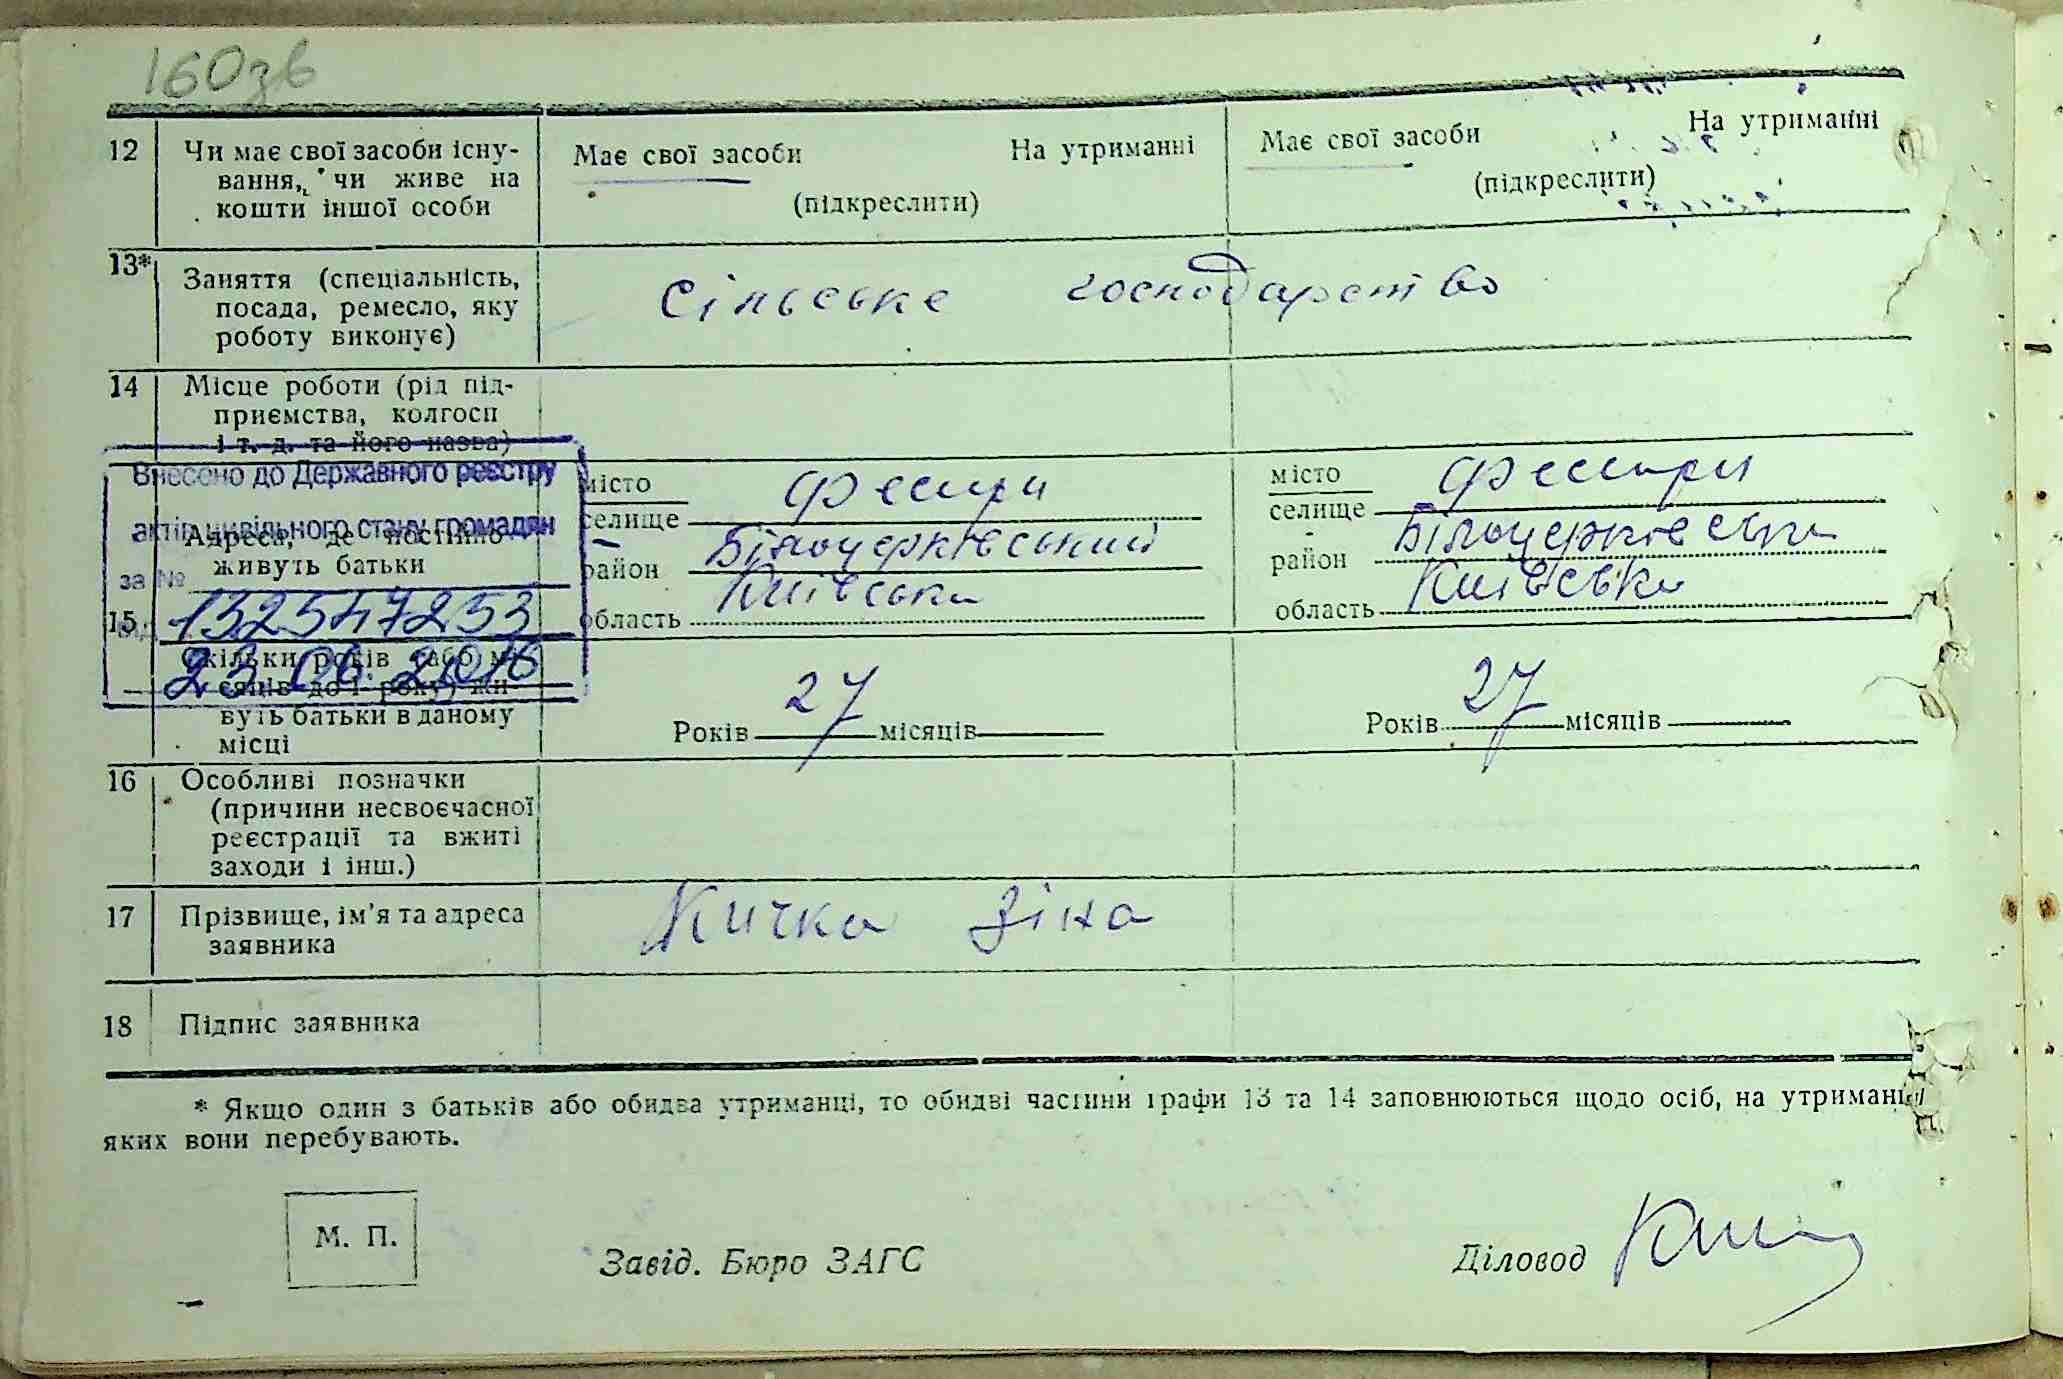 160зв
12 Чи має свої засоби існу-
вання, чи живе на
кошти іншої особи
Має свої засоби На утриманні
(підкреслити)
Має свої засоби На утриманні
(підкреслити)
13* Заняття (спеціальність,
посада, ремесло, яку
роботу виконує)
Сільське господарство
14 Місце роботи (рід під-
приємства, колгосп
і т. д. та його назва)
Внесено до Державного реєстру
актів цивільного стану громадян
за №
132547253
від
23.06.2016
Адреса, де постійно
живуть батьки
місто
селище Фесюри
район Білоцерківський
область Київська
місто
селище Фесюри
район Білоцерківська
область Київська
15 Скільки років (або мі-
сяців до 1 року) жи-
вуть батьки в даному
місці
Років 27 місяців
Років 27 місяців
16 Особливі позначки
(причини несвоєчасної
реєстрації та вжиті
заходи і інш.)
17 Прізвище, ім'я та адреса
заявника
Кичка Зіна
18 Підпис заявника
* Якщо один з батьків або обидва утриманці, то обидві частини графи 13 та 14 заповнюються щодо осіб, на утриманні
яких вони перебувають.
М. П.
Завід. Бюро ЗАГС
Діловод